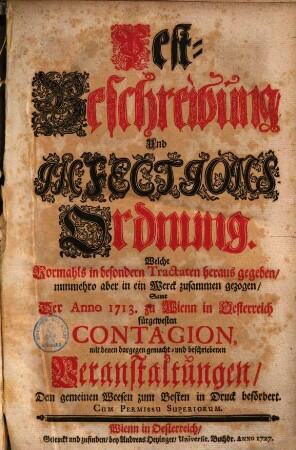 Pest-
Beschreibung
Und
INFECTIONS-
Ordnung.
Welche
Vormahls in besondern Tractaten heraus gegeben/
nunmehro aber in ein Werck zusammen gezogen/
Samt
Der Anno 1713. zu Wienn in Oesterreich
fürgewesten
CONTAGION,
mit denen dargegen gemacht- und beschriebenen
Veranstaltungen/
Dem gemeinen Weesen zum Besten in Druck befördert.
CUM PERMISSU SUPERIORUM.
Wienn in Oesterreich/
Gedruckt und zufinden/ bey Andreas Heyinger/ Universit. Buchdr. ANNO 1727.